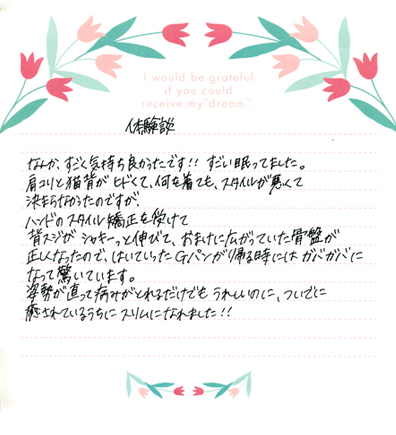 I would be grateful
if you could
receive my "dream".
体験談
なんか、すごく気持ち良かったです!! すごい眠ってました。
肩コリと猫背がヒドくて、何を着ても、スタイルが悪くて
決まらなかったのですが、
ハンドのスタイル矯正を受けて
背スジがシャキーッと伸びて、おまけに広がっていた骨盤が
正しくなったので、はいていったGパンが帰る時にはガバガバに
なって驚いています。
姿勢が直って痛みがとれるだけでもうれしいのに、ついでに
癒されているうちにスリムになれました!!